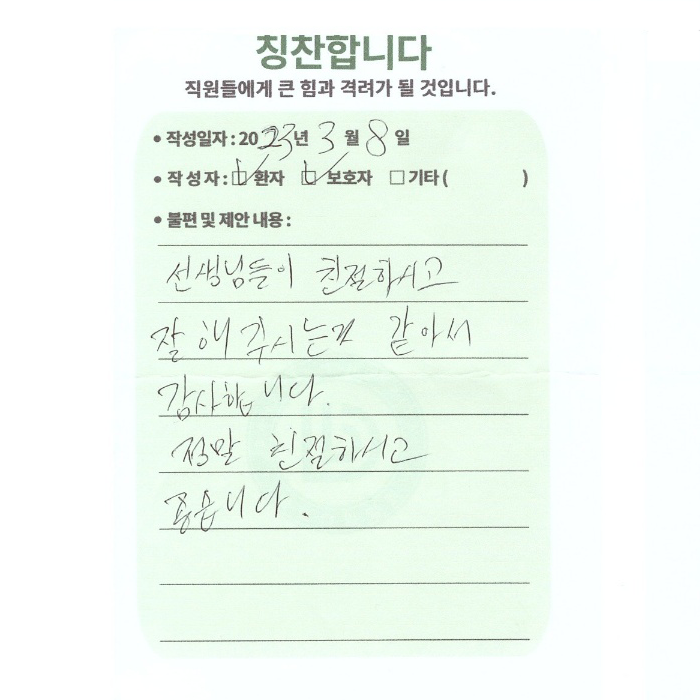 칭찬합니다
직원들에게 큰 힘과 격려가 될 것입니다.
• 작성일자 : 2023년 3월 8일
• 작 성 자 : ☑ 환자 ☑ 보호자 □ 기타 ( )
• 불편 및 제안 내용 :
선생님들이 친절하시고
잘 해 주시는거 같아서
감사합니다.
정말 친절하시고
좋습니다.